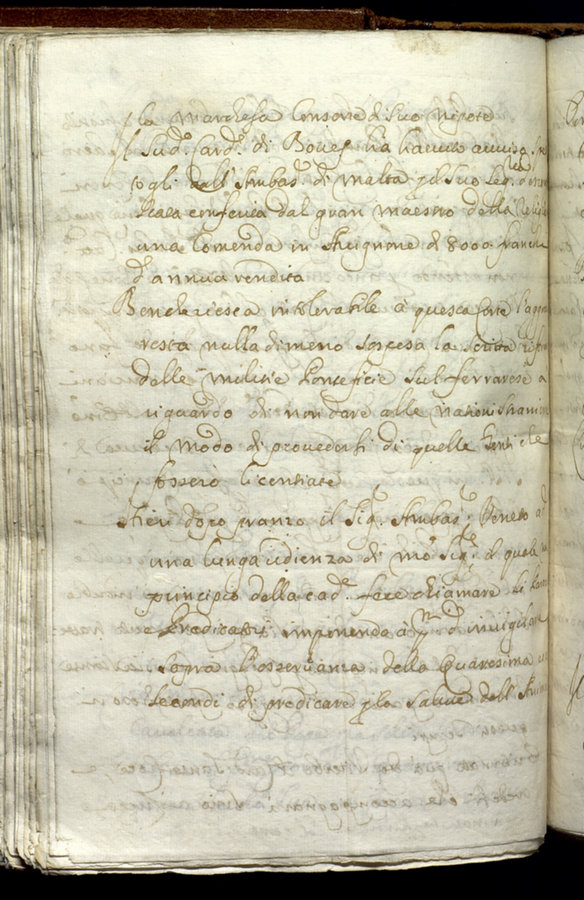 la Marchesa Consorte di suo Nipote
Il Sud.º Card.e di Boves ha havuto avviso
togli dall'Ambas.r di Malta p il suo Seg.rio
stata conferita dal gran Maestro della Relig
una Comenda in Avignone di 8000 franchi
d'annua rendita
Benche riesca intolerabile à questa
resta nulladimeno sospesa la
dalle Milizie Pontificie sul ferrarese a
riguardo di non dare alle nationi stranie
il modo di provedersi di quelle Genti che
fossero licentiate
Hieri dopo pranzo il Sig.r Ambas.r Veneto
una lunga udienza di il quale
principio della cad.a fece chiamare li
e Predicatori imponendo à d'invigilare
sopra l'osservanza della Quaresima
secondi di predicare p la salute dell'Anime